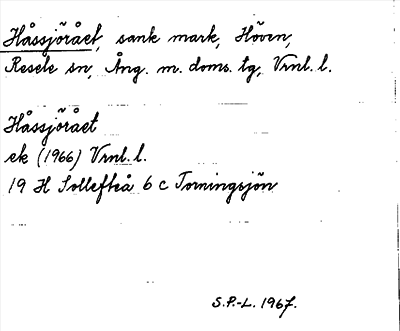 Håssjörået, sank mark, Höven,
Resele sn, Ång. m. doms. tg, Vrnl. l.
Håssjörået
ek (1966) Vrnl. l.
19 H Sollefteå 6 c Torningsjön
S.P.-L. 1967.